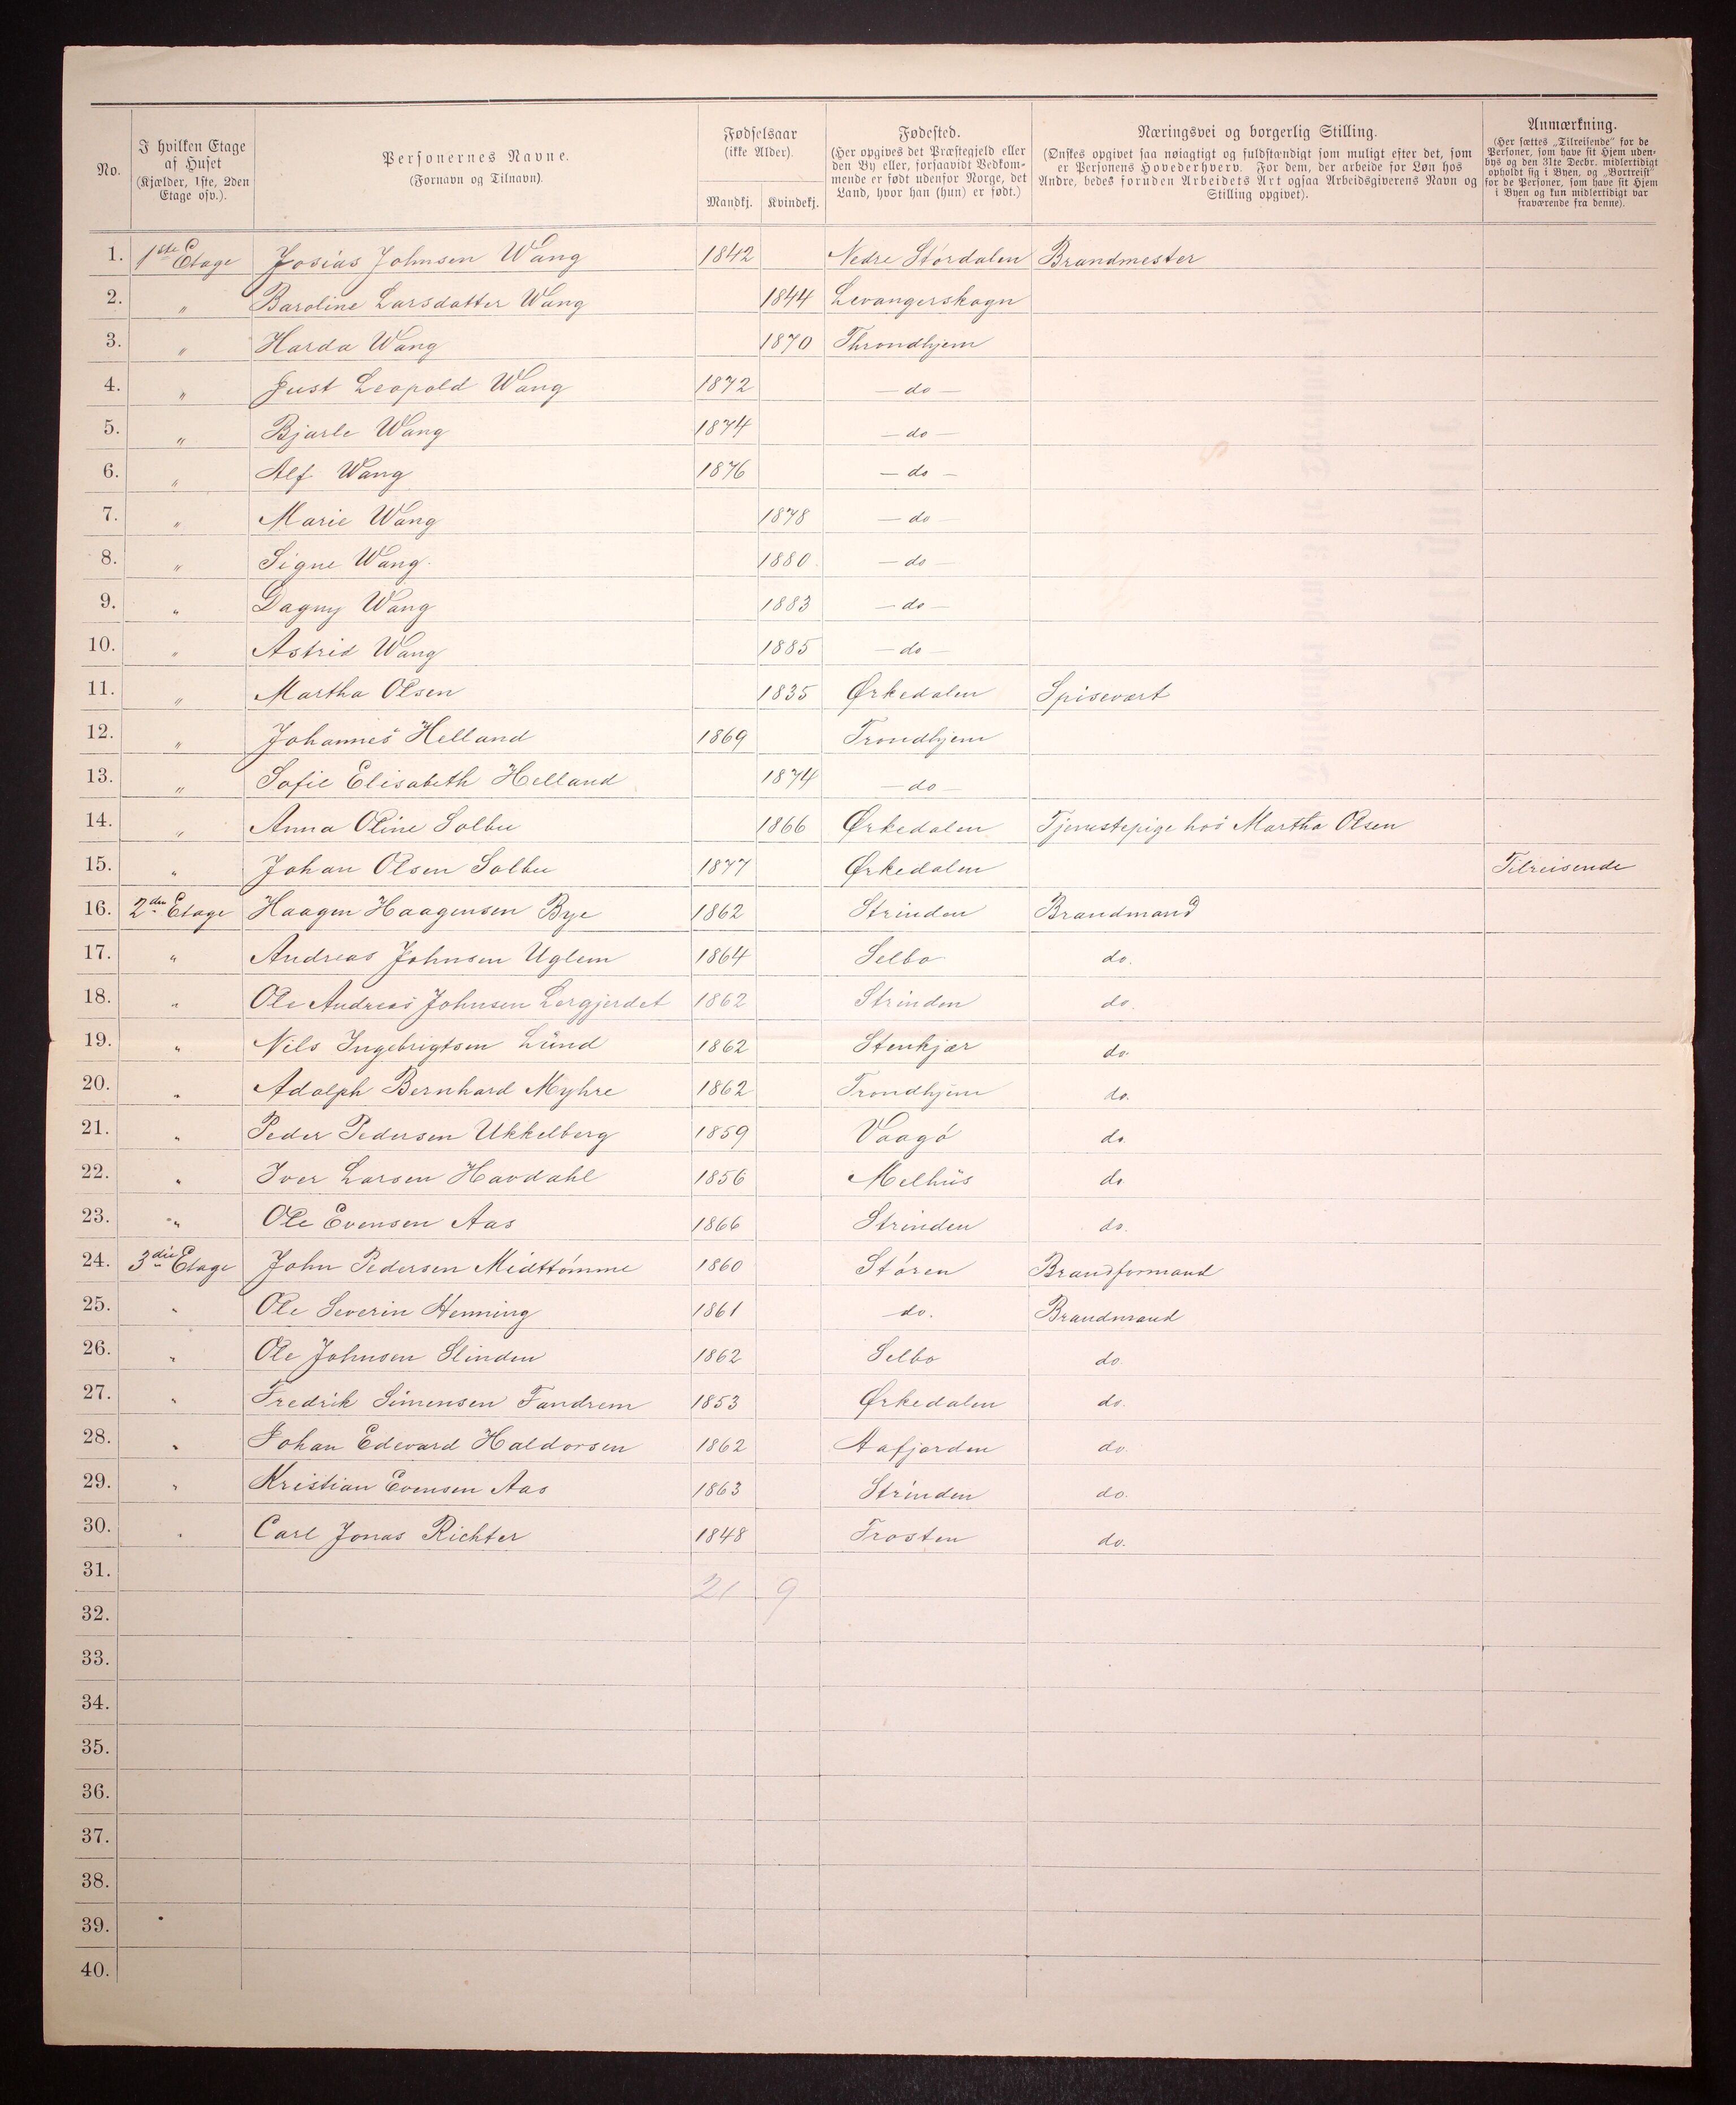 No.
I hvilken Etage af Huset (Kjælder, 1ste, 2den Etage osv.).
Personernes Navne. (Fornavn og Tilnavn).
Fødselsaar (ikke Alder). Mandkj. Kvindekj.
Fødested. (Her opgives det Præstegjeld eller den By eller, forsaavidt Vedkommende er født udenfor Norge, det Land, hvor han (hun) er født.)
Næringsvei og borgerlig Stilling. (Ønskes opgivet saa nøiagtigt og fuldstændigt som muligt efter det, som er Personens Hovederhverv. For dem, der arbeide for Løn hos Andre, bedes foruden Arbeidets Art ogsaa Arbeidsgiverens Navn og Stilling opgivet).
Anmærkning. (Her sættes „Tilreisende" for de Personer, som have sit Hjem udenbys og den 31te Decbr. midlertidigt opholdt sig i Byen, og „Bortreist" for de Personer, som have sit Hjem i Byen og kun midlertidigt var fraværende fra denne).
1. 1ste Etage Josias Johnsen Wang 1842 Nedre Stórdalen Brandmester
2. " Baroline Larsdatter Wang 1844 Levangerskogn
3. " Harda Wang 1870 Throndhjem
4. " Just Leopold Wang 1872 — do —
5. " Bjarle Wang 1874 — do —
6. " Alf Wang 1876 — do —
7. " Marie Wang 1878 — do —
8. " Signe Wang. 1880. — do —
9. " Dagny Wang 1883 — do —
10. " Astrid Wang 1885 — do —
11. " Martha Olsen 1835 Ørkedalen Spisevært
12. " Johannes Helland 1869 Trondhjem
13. " Sofie Elisabeth Helland 1874 — do —
14. " Anna Oline Solbu 1866 Ørkedalen Tjenestepige hos Martha Olsen
15. " Johan Olsen Solbu 1877 Ørkedalen Tilreisende
16. 2den Etage Haagen Haagensen Bye 1862 Strinden Brandmand
17. " Andreas Johnsen Uglem 1864 Selbo do.
18. " Ole Andreas Johnsen Lergjerdet 1862 Strinden do.
19. " Nils Ingebrigtsen Lund 1862 Stenkjær do.
20. " Adolph Bernhard Myhre 1862 Trondhjem do.
21. " Peder Pedersen Ukkelberg 1859 Vaagó do
22. " Iver Larsen Havdahl 1856 Melhus do
23. " Ole Evensen Aas 1866 Strinden do.
24. 3die Etage John Pedersen Midttómme 1860 Stóren Brandformand
25. " Ole Severin Henning 1861 do. Brandmand
26. " Ole Johnsen Slinden 1862 Selbo do.
27. " Fredrik Simensen Fandrem 1853 Ørkedalen do.
28. " Johan Edevard Haldorsen 1862 Aafjorden do.
29. " Kristian Evensen Aas 1863 Strinden do.
30. " Carl Jonas Richter 1848 Frosten do.
31. 21 9
32.
33.
34.
35.
36.
37.
38.
39.
40.